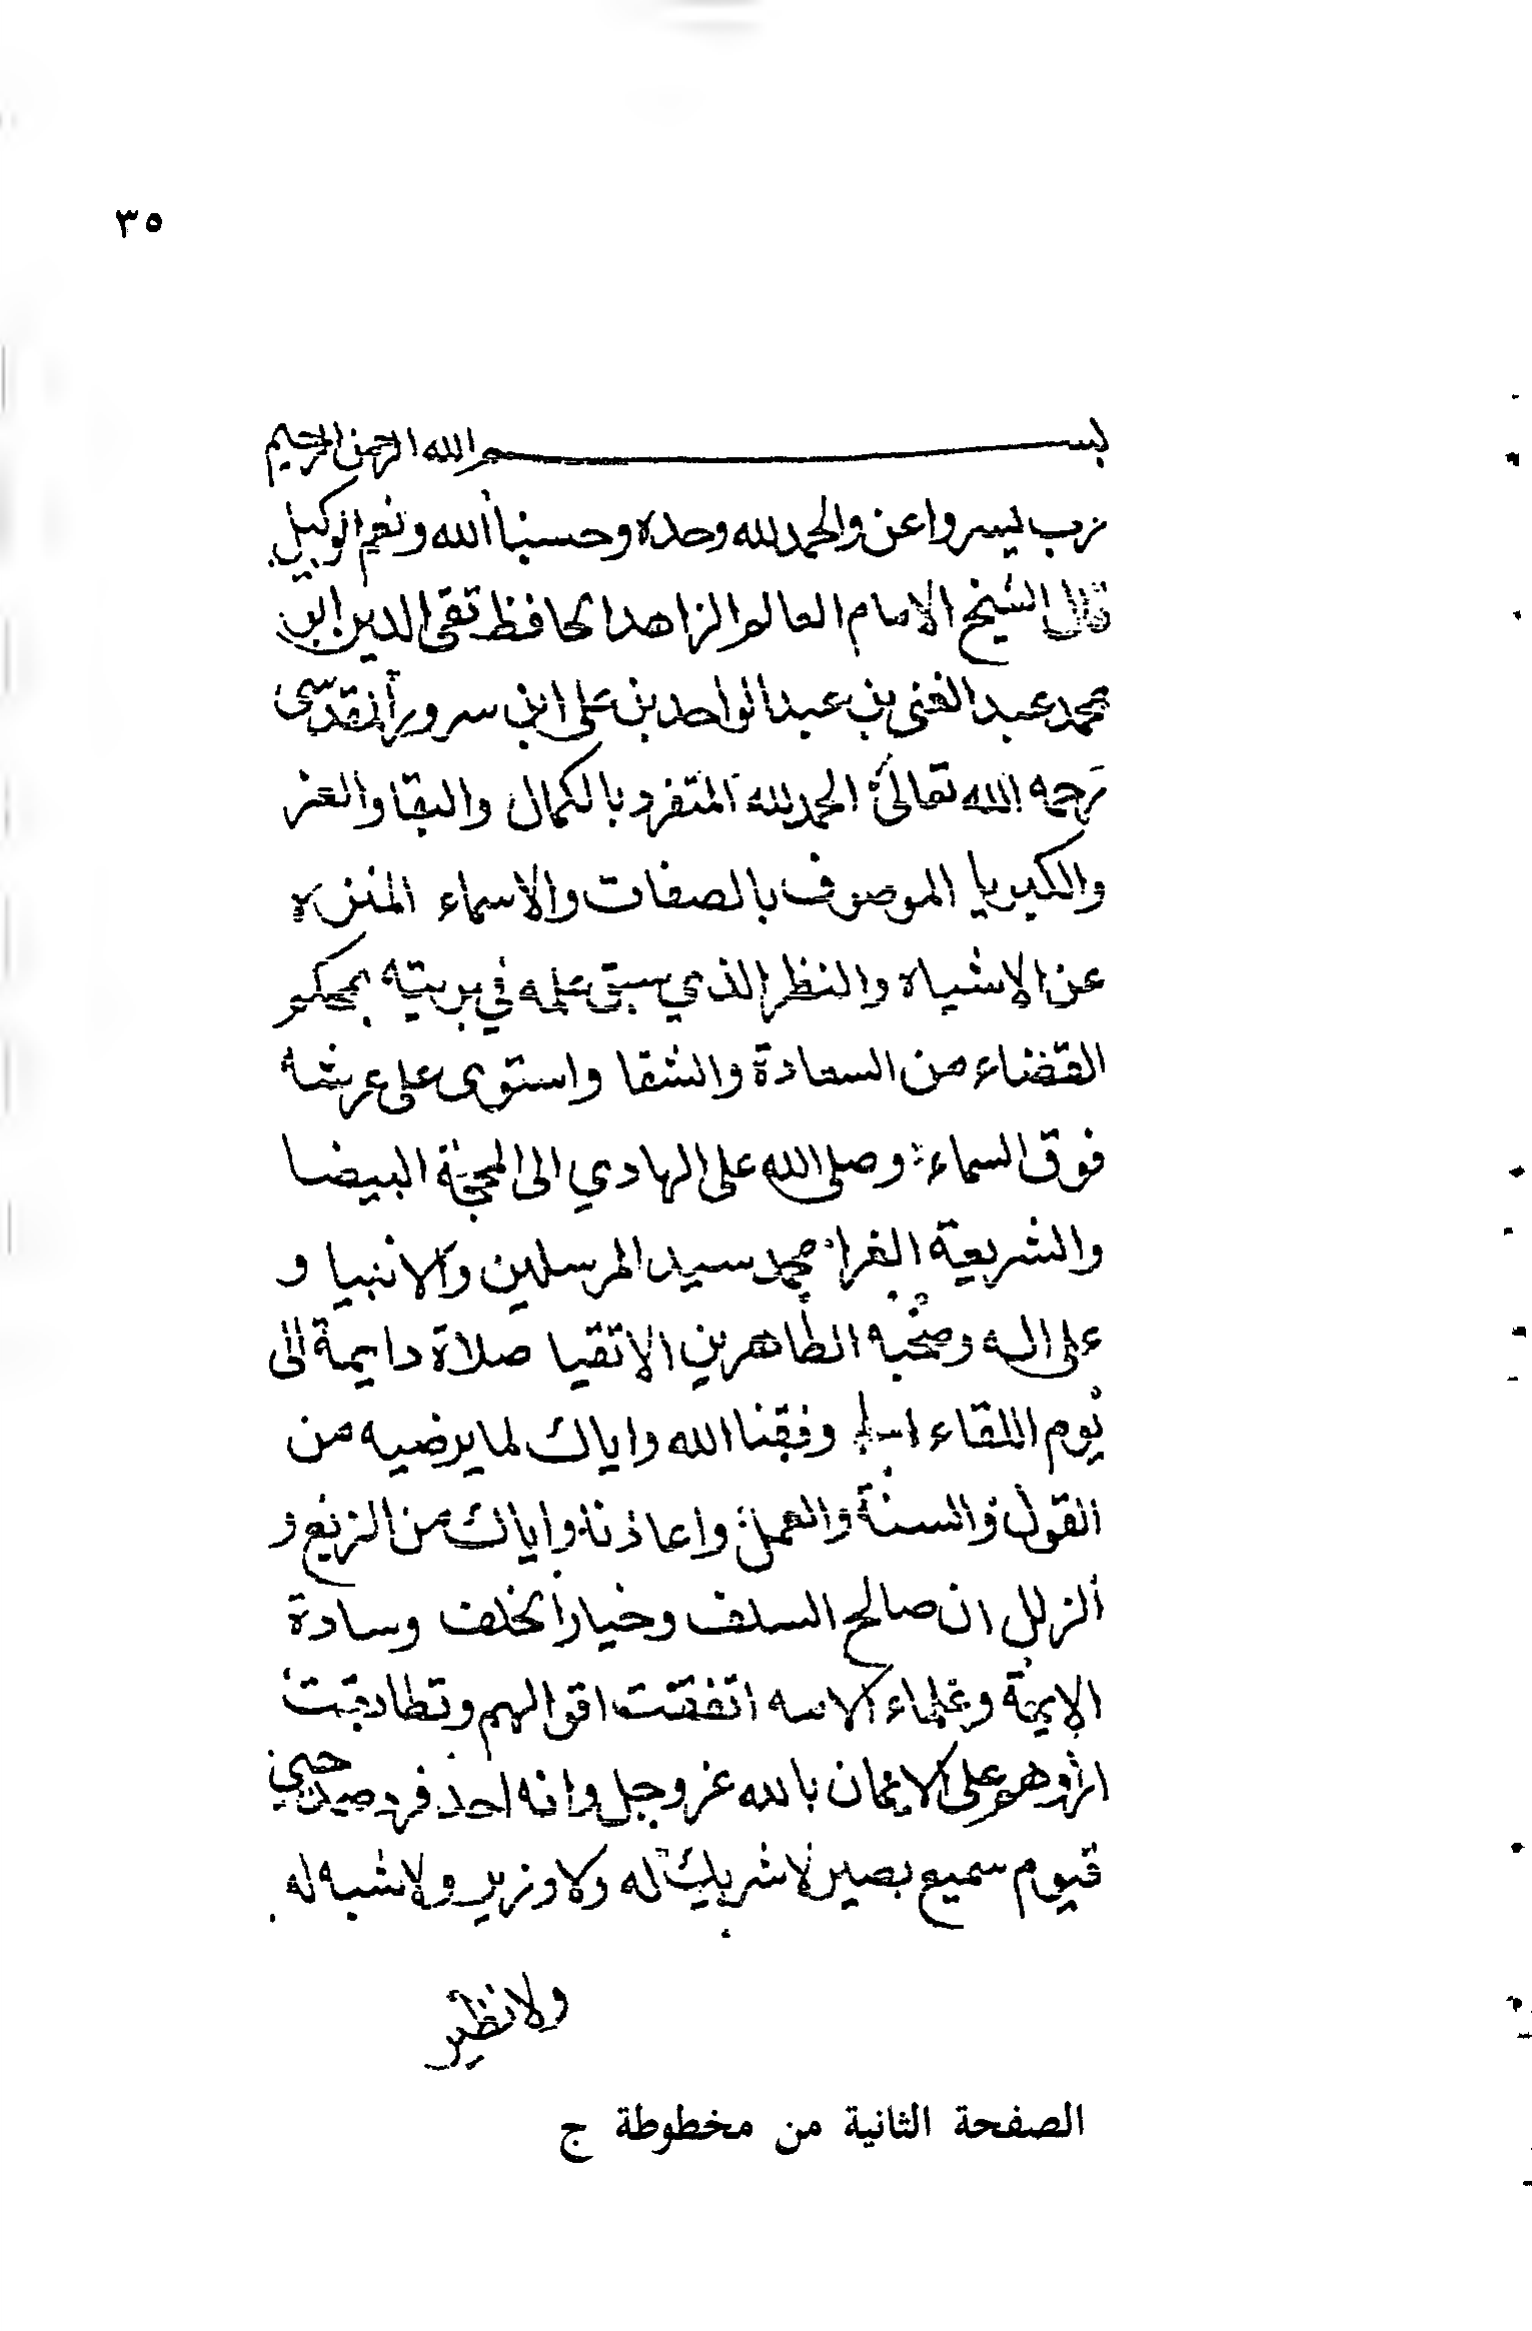 ٣٥
بسم الله الرحمن الرحيم
رب يسر واعن والحمد لله وحده وحسبنا الله ونعم الوكيل
قال الشيخ الامام العالم الزاهد الحافظ تقى الدين ابن
محمد عبد الغنى بن عبد الواحد بن على ابن سرور المقدسى
رحمه الله تعالى الحمد لله المتفرد بالكمال والبقا والعز
والكبريا الموصوف بالصفات والاسماء المنزه
عن الاشباه والنظر الذي سبق علمه في بريته بمحكم
القضاء من السعادة والشقا واستوى على عرشه
فوق السماء وصلى الله على الهادي الى المحجة البيضا
والشريعة الغرا محمد سيد المرسلين والانبيا و
على اله وصحبه الطاهرين الاتقيا صلاة دايمة الى
يوم اللقاء وفقنا الله واياك لما يرضيه من
القول والسنة والعمل واعاذنا واياك من الزيغ و
الزلل ان صالح السلف وخيار الخلف وسادة
الايمة وعلماء الامه اتفقت اقوالهم وتطابقت
اراوهم على الايمان بالله عز وجل وانه احد فرد صمد حي
قيوم سميع بصير لا شريك له ولا وزير ولا شبه له
ولا نظير
الصفحة الثانية من مخطوطة ج